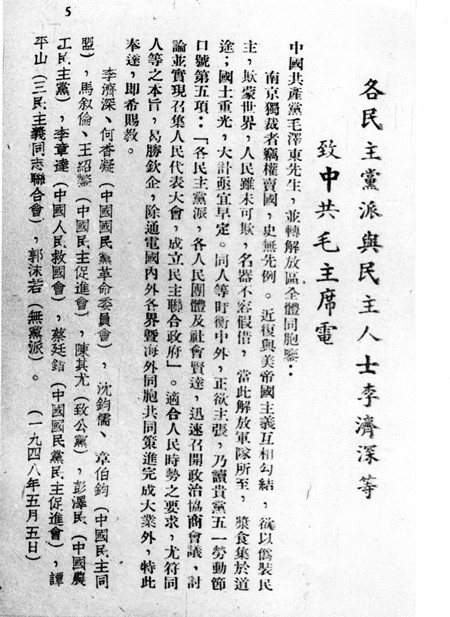 5
各民主黨派與民主人士李濟深等
致中共毛主席電
中國共產黨毛澤東先生,並轉解放區全體同胞鑒:
南京獨裁者竊權賣國,史無先例。近復與美帝國主義互相勾結,欲以僞裝民
主,欺蒙世界,人民雖未可欺,名器不容假借,當此解放軍隊所至,漿食集於道
途;國土重光,大計亟宜早定。同人等盱衡中外,正欲主張,乃讀貴黨五一勞動節
口號第五項:「各民主黨派,各人民團體及社會賢達,迅速召開政治協商會議,討
論並實現召集人民代表大會,成立民主聯合政府」。適合人民時勢之要求,尤符同
人等之本旨,曷勝欽企,除通電國內外各界暨海外同胞共同策進完成大業外,特此
奉達,即希賜教。
李濟深、何香凝(中國國民黨革命委員會),沈鈞儒、章伯鈞(中國民主同
盟),馬叙倫、王紹鏊(中國民主促進會),陳其尤(致公黨),彭澤民(中國農
工民主黨),李章達(中國人民救國會),蔡廷鍇(中國國民黨民主促進會),譚
平山(三民主義同志聯合會),郭沫若(無黨派)。(一九四八年五月五日)